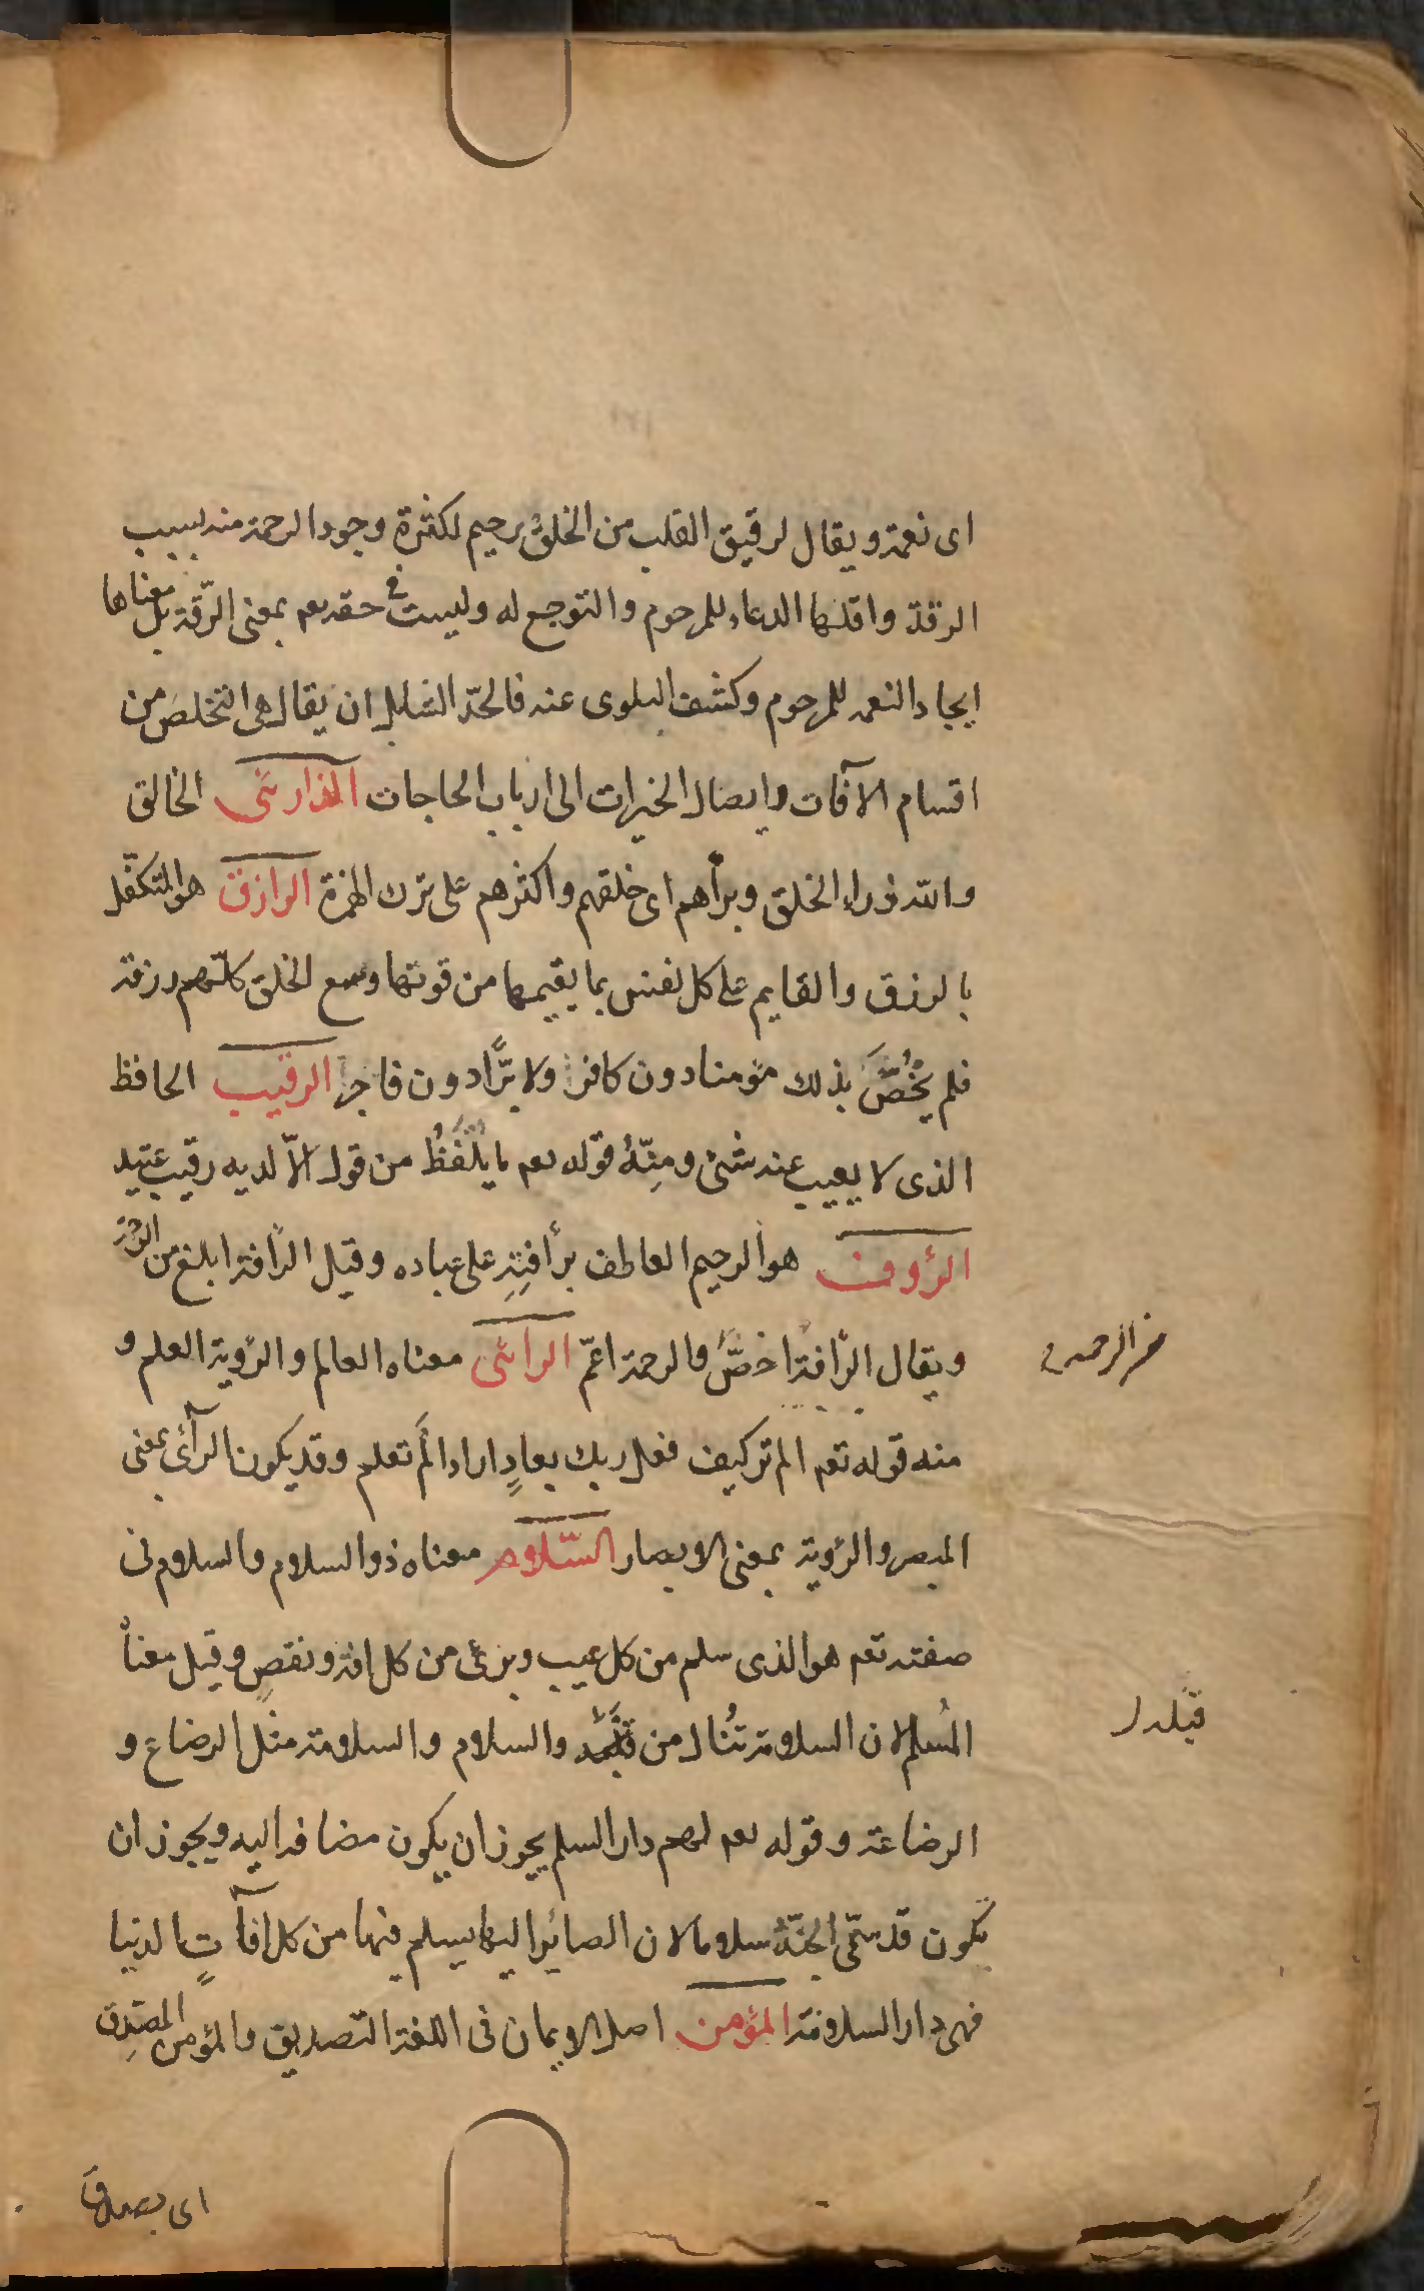 اى نعمة ويقال لرقيق القلب من الخلق رحيم لكثرة وجود الرحمة منه بسبب
الرقة واقلها الدعاء للمرحوم والتوجع له وليست فى حقه تعم بمعنى الرّقة بل معناها
ايجاد النعمه للمرحوم وكشف البلوى عنه فالحدّ الشامل ان يقال هى التخلص من
اقسام الآفات وايصال الخيرات الى ارباب الحاجات الذارئى الخالق
والله ذراء الخلق وبرأهم اى خلقهم واكثرهم على ترك الهمزة الرازق هو المتكفّل
بالرزق والقايم على كل نفس بما يقيمها من قوتها وسع الخلق كلّهم رزقه
فلم يَخُصَّ بذلك مؤمنا دون كافر ولا برًّا دون فاجر الرقيب الحافظ
الذى لا يغيب عنه شئ ومِنهُ قوله تعم ما يلفظُ من قول الاّ لديه رقيب عتيد
الرؤوف هو الرحيم العاطف برأفتِهِ على عباده وقيل الرأفة ابلغ من الرحمة
ويقال الرأفة اخصّ والرحمة اعمّ الرائى معناه العالم والرؤية العلم و
من الرحمة
منه قوله تعم الم تر كيف فعل ربك بعادٍ اراد الَم تعلم وقد يكون الرآئى بمعنى
المبصر والرؤية بمعنى الابصار السّلام معناه ذو السلام والسلام فى
صفته تعم هو الذى سلم من كل عيب وبرئ من كل افة ونقصٍ وقيل معناه
المُسلم لان السلامة تُنال من قِبَله والسلام والسلامة مثل الرضاع و
قبله
الرضاعة وقوله تعم لهم دار السلم يجوز ان يكون مضافه اليه ويجوز ان
يكون قد سمّى الجنّة سلاما لان الصائر اليها يسلم فيها من كل افآتِ الدنيا
فهى دار السلامة المؤمن اصل الايمان فى اللغة التصديق والمؤمن المصدِق
اى يصدق